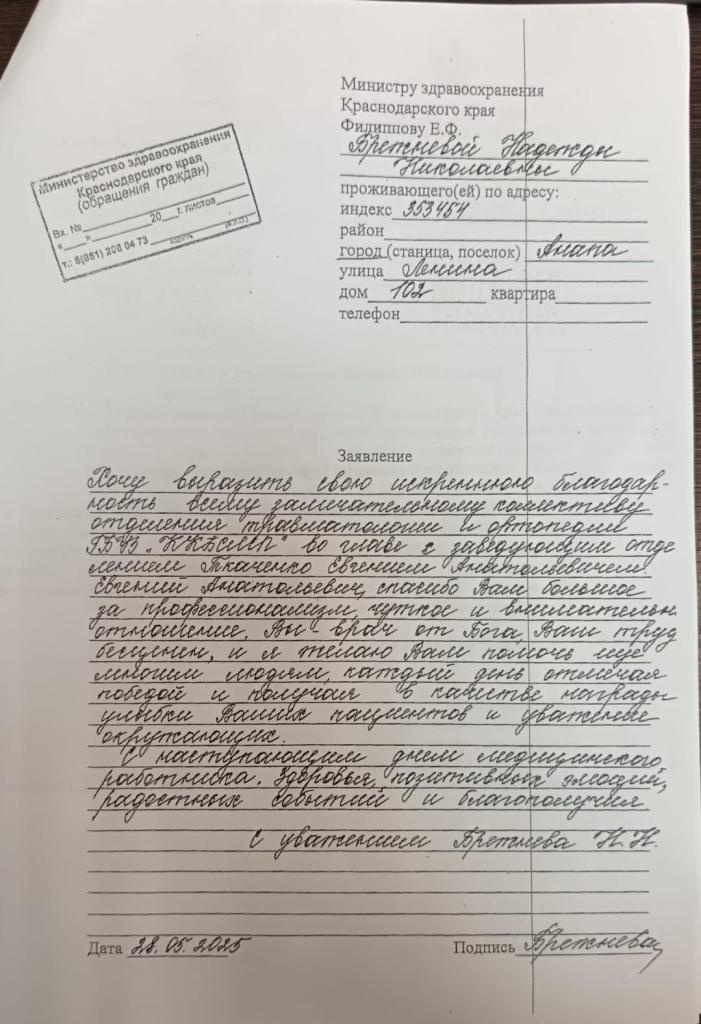 Министру здравоохранения
Краснодарского края
Филиппову Е.Ф.
Брежневой Надежды
Николаевны
проживающего(ей) по адресу:
индекс 353454
район
город (станица, поселок) Анапа
улица Ленина
дом 102 квартира
телефон
Министерство здравоохранения
Краснодарского края
(обращения граждан)
Вх. №
"___" 20___г. листов
т.: 8(861) 208 04 73 (Ф.И.О.)
Заявление
Хочу выразить свою искреннюю благодар-
ность всему замечательному коллективу
отделения травматологии и ортопедии
ГБУЗ „ККБСМП" во главе с заведующим отде
лением Ткаченко Евгением Анатольевичем.
Евгений Анатольевич, спасибо Вам большое
за профессионализм, чуткое и внимательн
отношение. Вы - врач от Бога, Ваш труд
бесценен, и я желаю Вам помочь еще
многим людям, каждый день отмечая
победой и получая в качестве награды
улыбки Ваших пациентов и уважение
окружающих.
С наступающим днем медицинского
работника. Здоровья, позитивных эмоций,
радостных событий и благополучия
С уважением Брежнева Н.Н.
Дата 28.05.2025 Подпись Брежнева